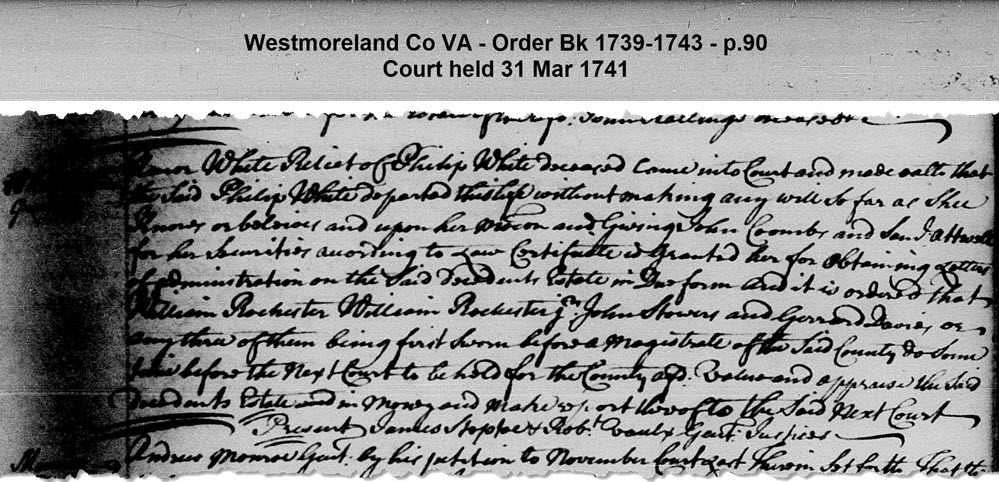 Westmoreland Co VA - Order Bk 1739-1743 - p.90
Court held 31 Mar 1741
deceased &c
White Relict of Philip White deceased Came into Court and made oath that
the Said Philip White departed this life without making any will So far as Shee
Knows or beleives and upon her mocon and Giving John Coombs and Sam.l Attwell
for her Securities acording to Law Certificate is Granted her for Obtaining Letters
of administration on the Said decedents Estate in Due form and it is ordered that
William Rochester William Rochester jr. John Stowers and Gerrard Davies or
any three of them being first Sworn before a Magistrate of the Said County do Some
time before the Next Court to be held for the County afd. Value and appraise the Said
decedents Estate and in Money and make report thereof to the Said Next Court
Present James Steptoe & Robt. Vaulx Gent. Justices
Andrew Monroe Gent. by his petition to November Court last Therein Set forth That the